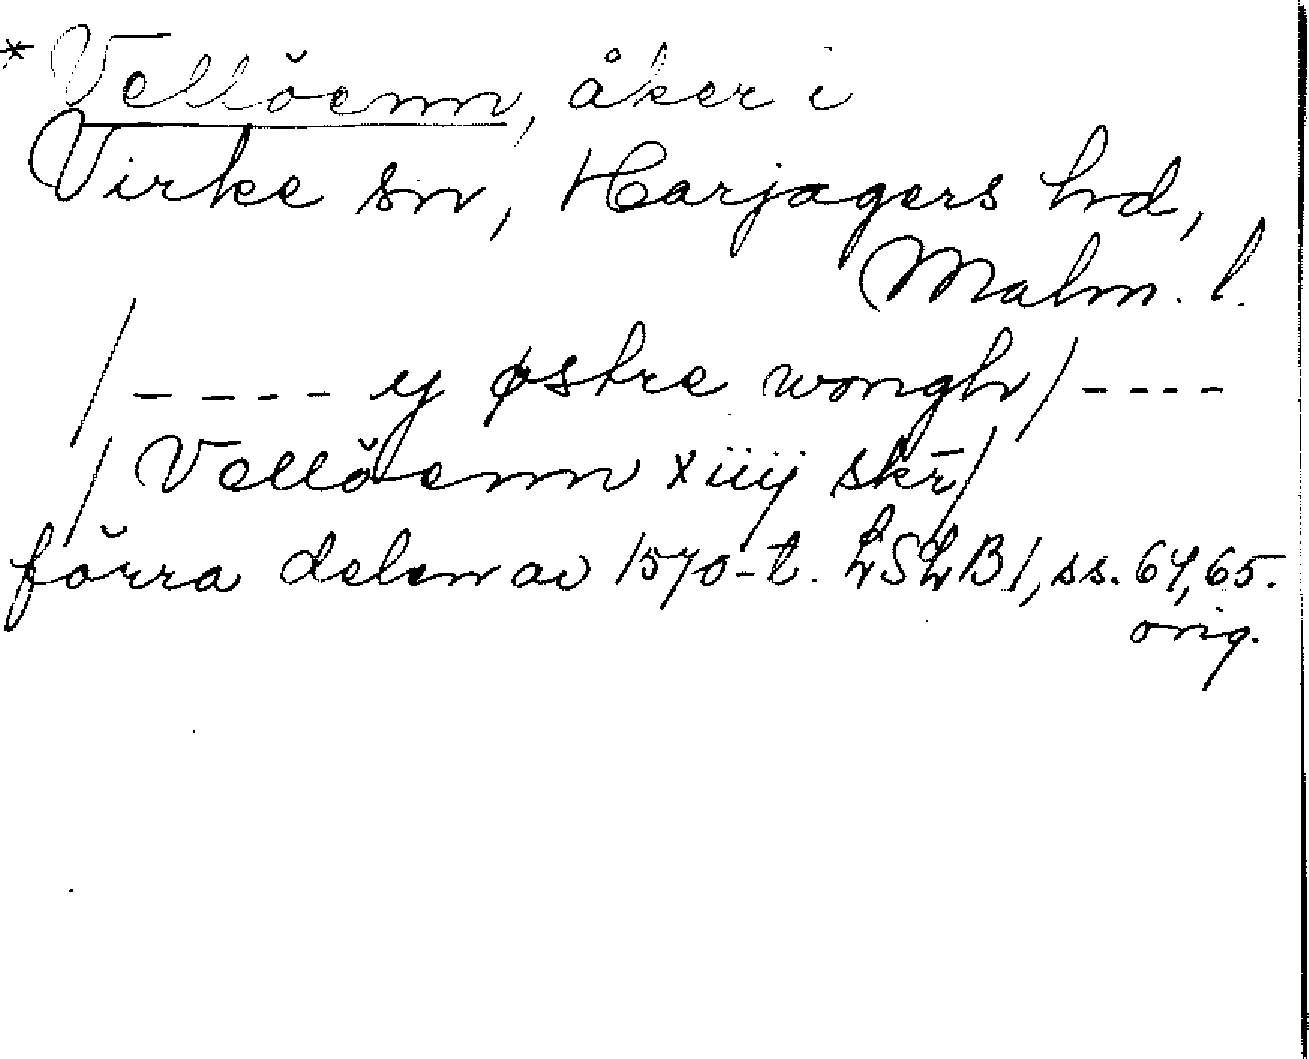 *Vellöenn, åker i
Virke sn, Harjagers hd,
Malm. l.
/----- y østre wongh/----
/Vellöenn xiiij skr̄/
förra delen av 1570-t. LSLB1, ss. 64, 65.
orig.